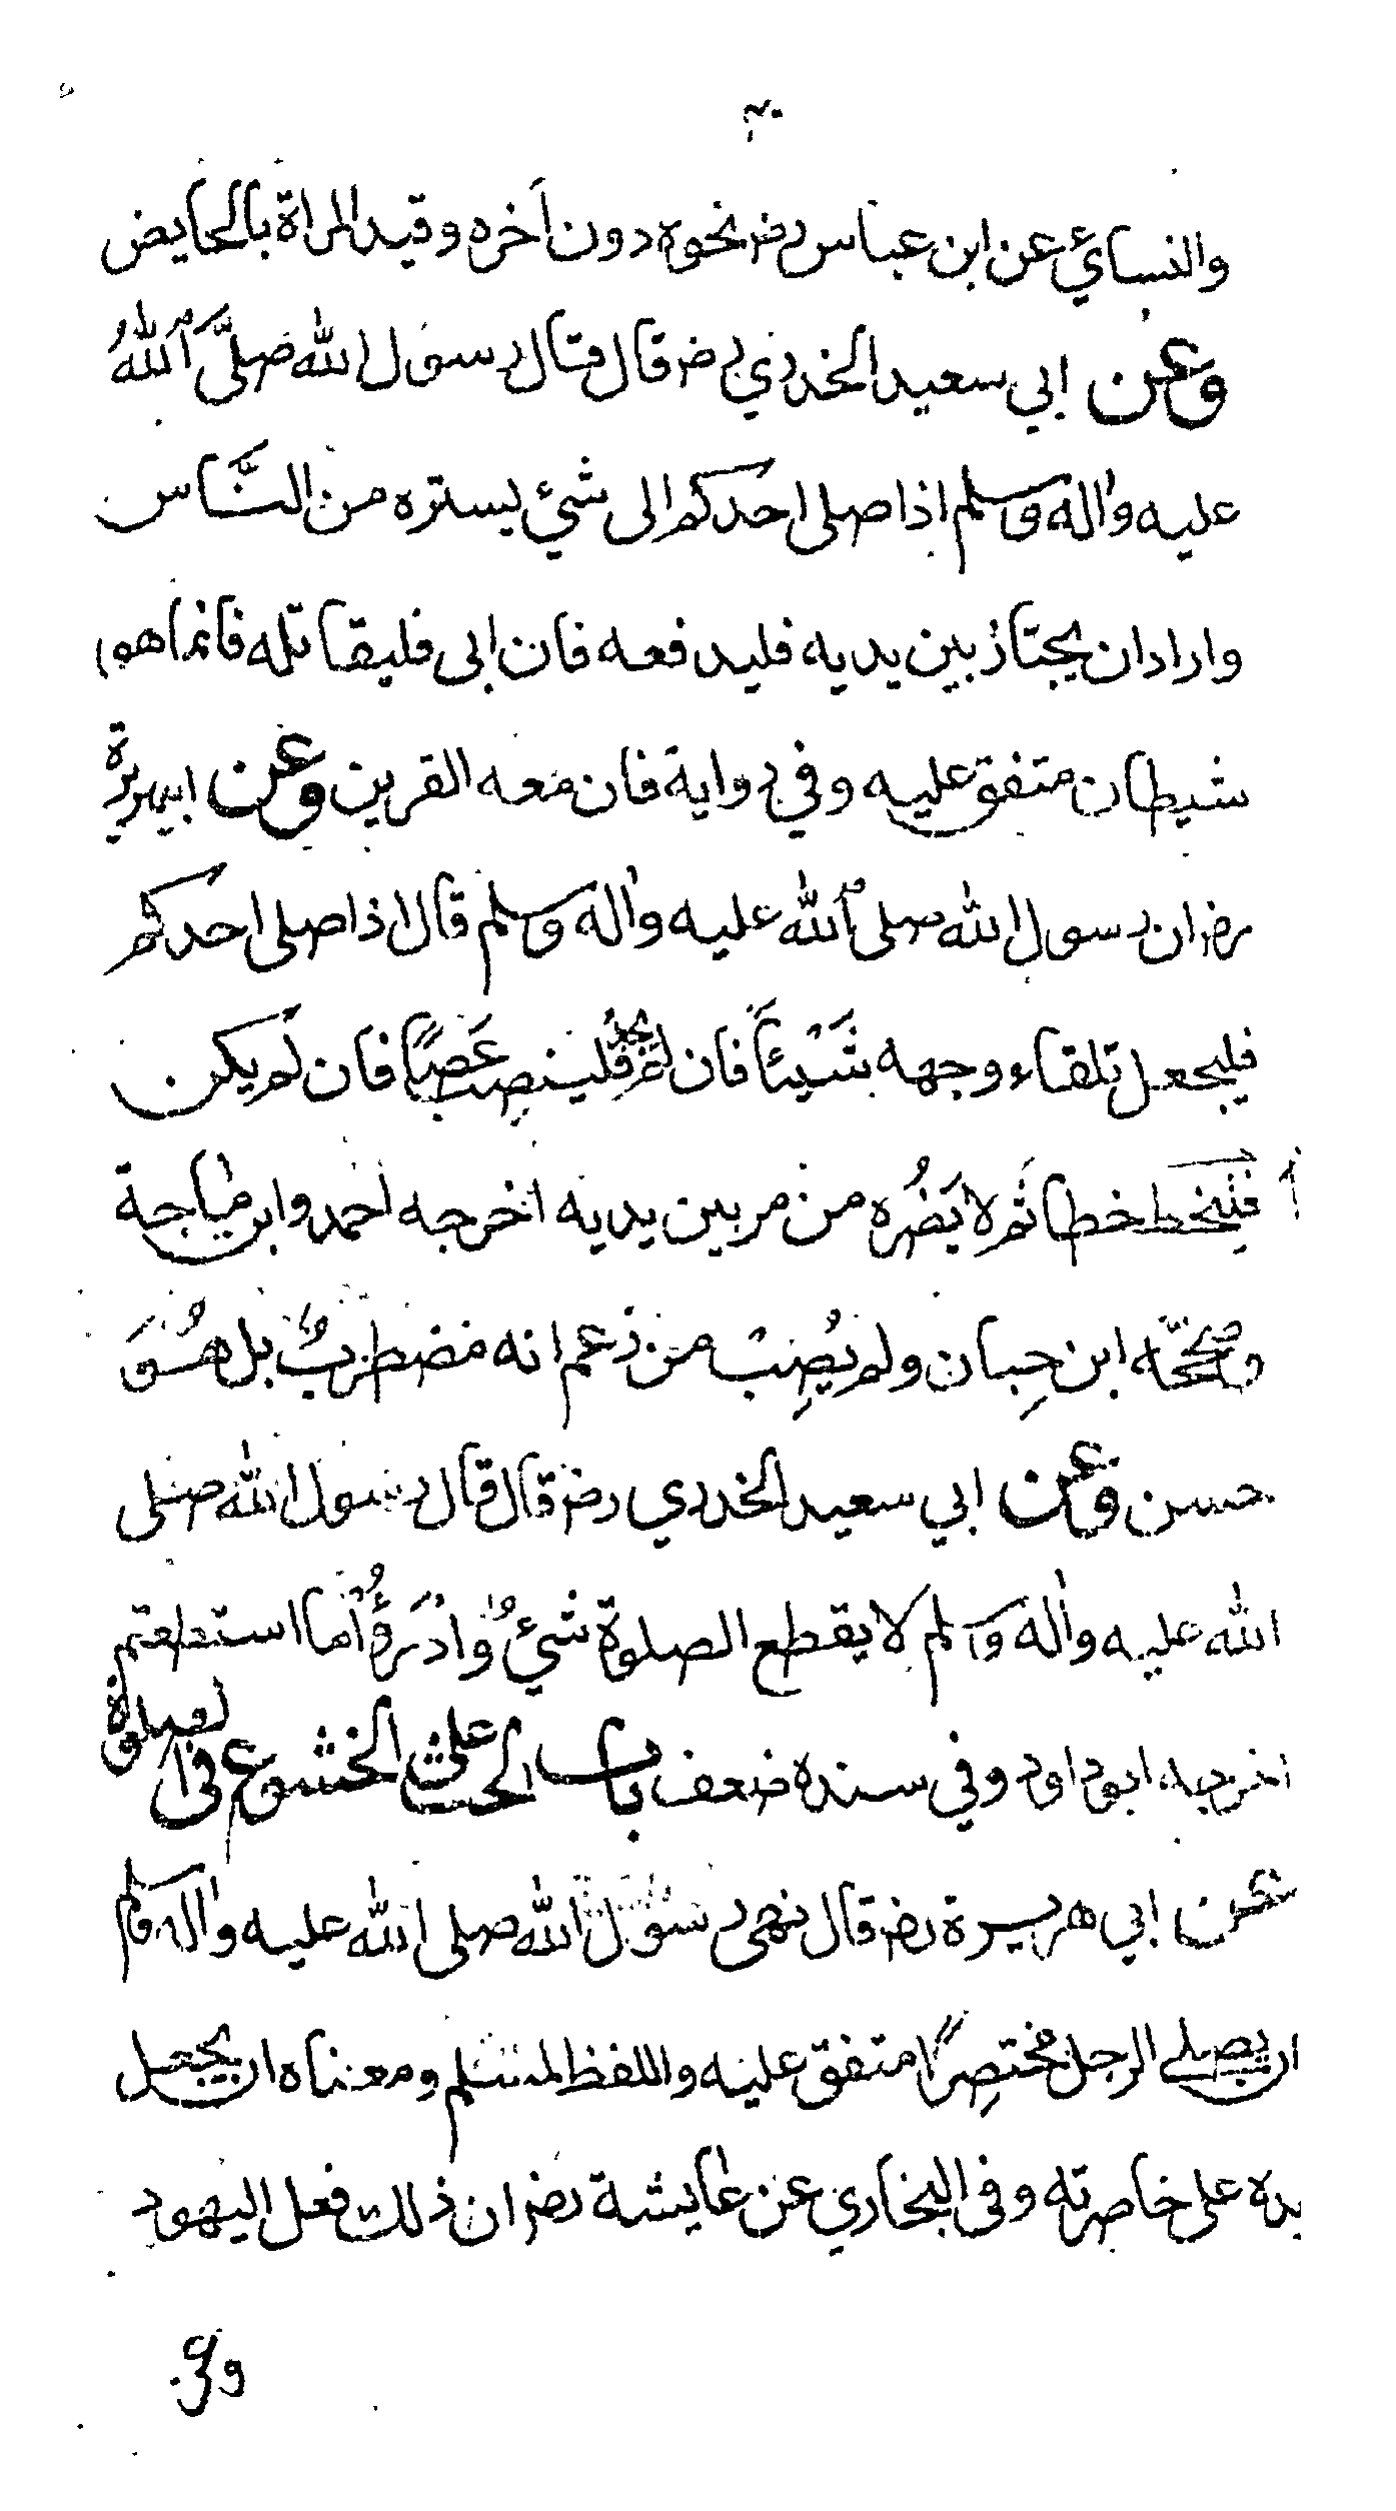 ٣٠
والنسائي عن ابن عباس رضـ نحوه دون اخره وقيد المراة بالحايض
وعن ابي سعيد الخدري رضـ قال قال رسول الله صلَّى اللهُ
عليه واله وسلم اذا صلى احدكم الى شيء يستره من النَّاس
واراد ان يجتاز بين يديه فليدفعه فان ابى فليقاتله فانما هو
شيطان متفق عليه وفي رواية فان معه القرين وعن ابيهريرة
رضـ ان رسول الله صلى الله عليه واله وسلم قال اذا صلى احدكم
فليجعل تلقاء وجهه شَيْئاً فان لم يجد فلينصِب عَصًا فان لم يكن
فليخط خطا ثم لا يَضُره من مر بين يديه اخرجه احمد وابن ماجة
وصححه ابن حِبان ولم يُصِبْ من زعم انه مضطربٌ بل هُوَ
حسن وعن ابي سعيد الخدري رضـ قال قال رسول الله صلى
الله عليه واله وسلم لا يقطع الصلوة شيءٌ وادْرَؤُا ما استطعتم
اخرجه ابوداود وفي سنده ضعف باب الحث على الخشوع فى الصلوة
عن ابي هريرة رضـ قال نهى رسول الله صلى الله عليه واله وسلم
ان يصلي الرجل مختصِرًا متفق عليه واللفظ لمسلم ومعناه ان يجعل
يده على خاصرته وفى البخاري عن عايشة رضـ ان ذلك فعل اليهود
وفي